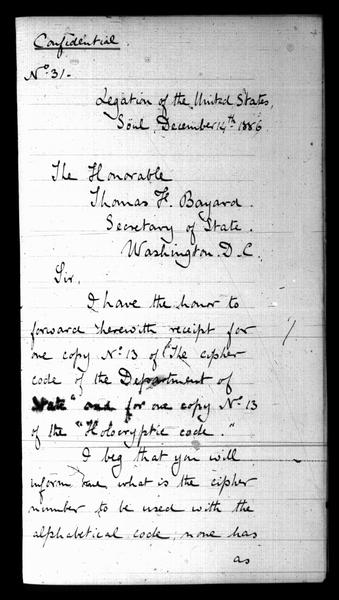 Confidential.
No. 31.
Legation of the United States,
Söul, December 14th 1886.
The Honorable
Thomas F. Bayard.
Secretary of State.
Washington. D. C.
Sir,
I have the honor to
forward herewith receipt for
one copy No. 13 of "The cipher
code of the Department of
State" and for one copy No. 13
of the "Holocryptic code."
I beg that you will
inform me what is the cipher
number to be used with the
alphabetical code, none has
as